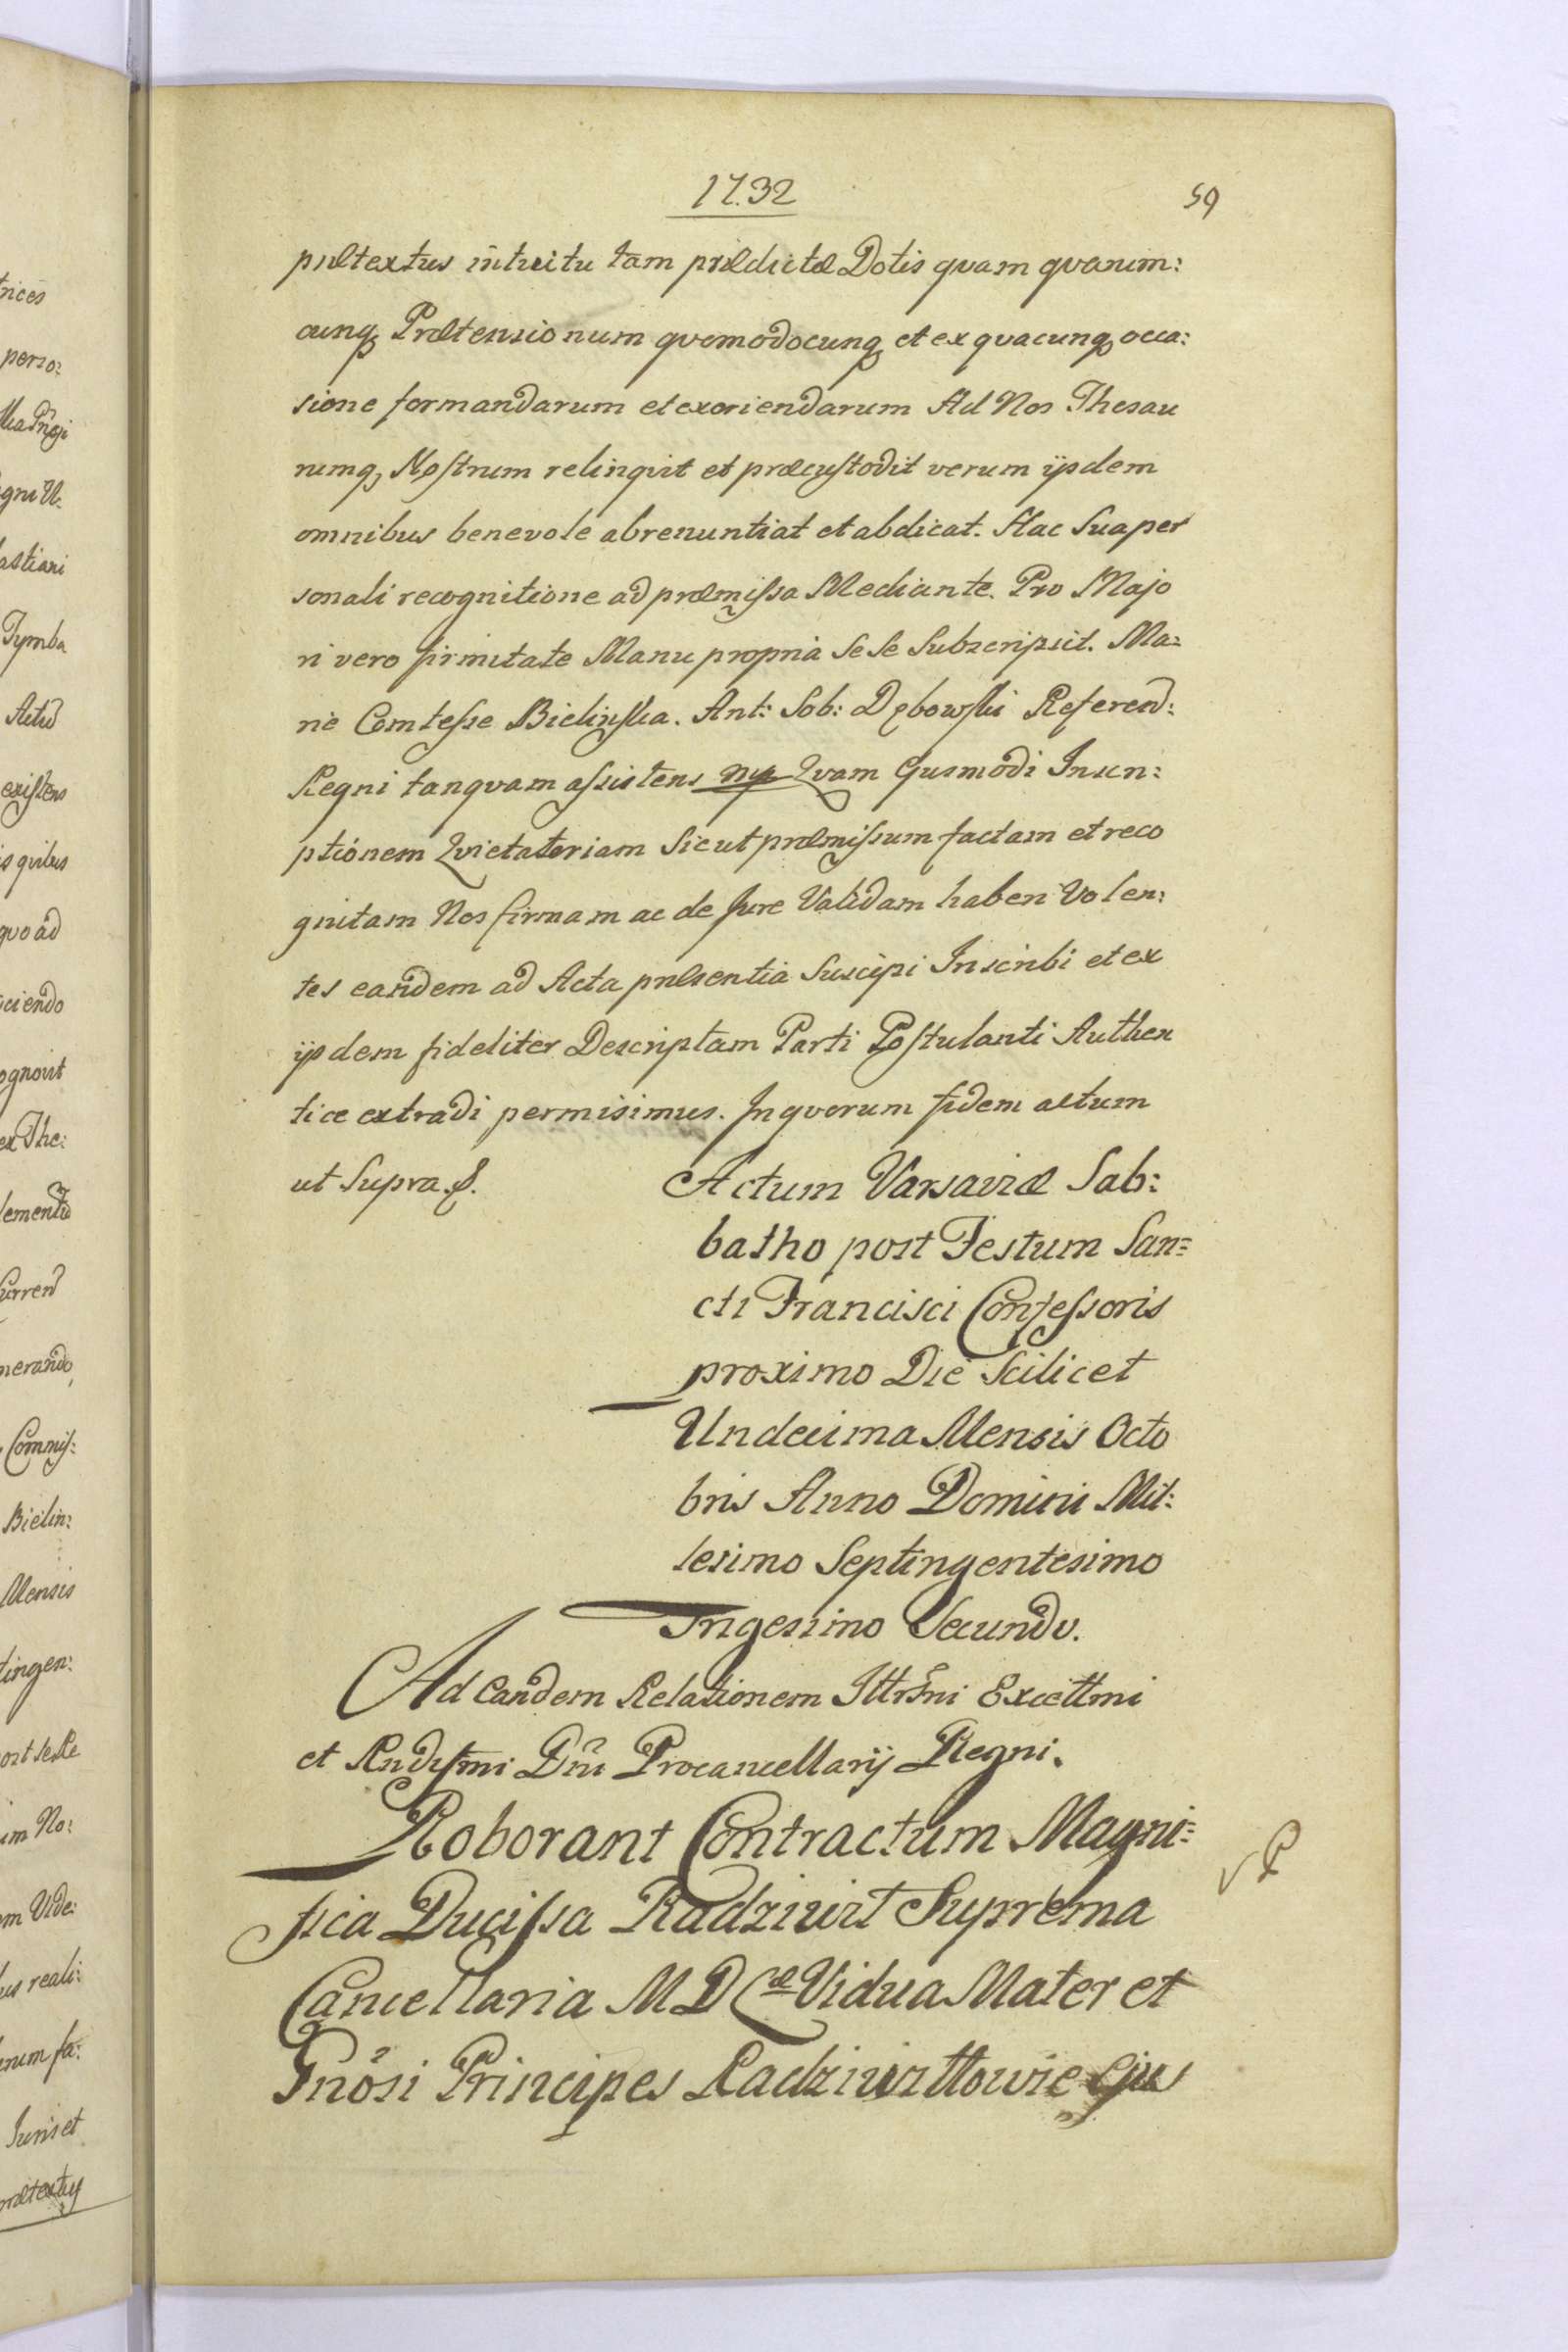 1732
59
prætextus intuitu tam prædictæ Dotis quam quarum:
cunq Prætensionum quomodocunq et ex quacunq occa:
sione formandarum et exoriendarum Ad Nos Thesau
rumq Nostrum relinquit et præcustodit verum ijsdem
omnibus benevole abrenuntiat et abdicat. Hac Sua per
sonali recognitione ad præmissa Mediante. Pro Majo
ri vero firmitate Manu propria Se Se Subscripsit. Ma=
rie Comtesse Bielinska. Ant: Seb: Dębowski Referend:
Regni tanquam assistens mp Quam Gusmodi Inscri:
ptionem Quietatoriam Sicut præmissum factam et reco
gnitam Nos firmam ac de Jure Validam haberi Volen:
tes eandem ad Acta præsentia Suscipi Inscribi et ex
ijsdem fideliter Descriptam Parti Postulanti Authen
tice extradi permisimus. In quorum fidem actum
ut Supra.
Actum Varsaviæ Sab:
batho post Festum San=
cti Francisci Confessoris
proximo Die Scilicet
Undecima Mensis Octo
bris Anno Domini Mil:
lesimo Septingentesimo
Trigesimo Secundo.
Ad Eandem Relationem Illrsmi Excellmi
et Rndssmi Dni Procancellarij Regni.
Roborant Contractum Magni=
fica Ducissa Radziwił Suprema
Cancellaria M D Læ Vidua Mater et
Gnosi Principes Radziwiłłowie Ejus
trices
perso:
astiani
Tymba
Actu
existens
is quibus
quo ad
iciendo
ognovit
ex The:
Commis:
Bielin:
Mensis
tingen:
im No:
em Vide:
us reali:
Juris et
prætextus